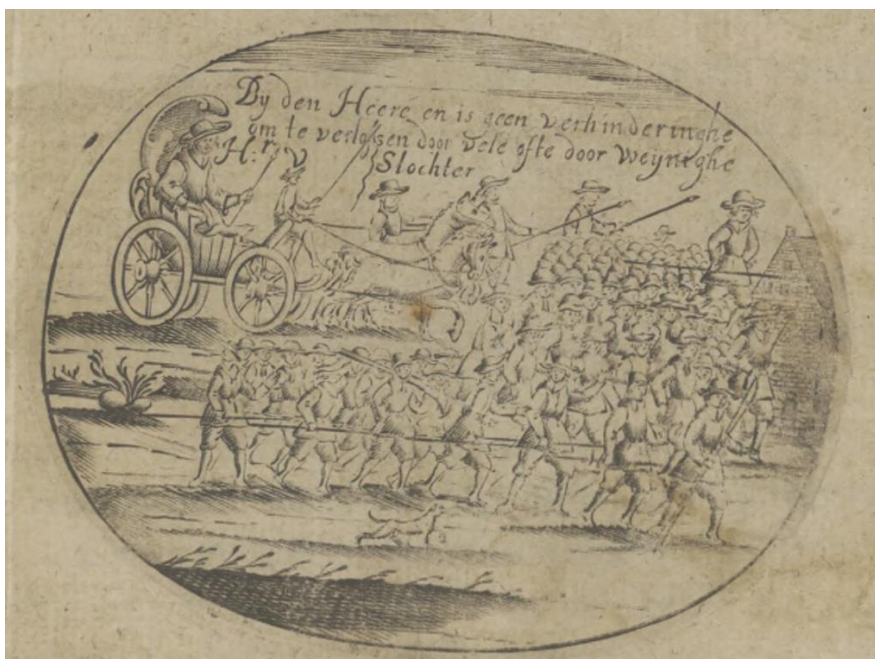 By den Heere en is geen verhinderinghe
om te verlossen door vele ofte door weynighe
H:r.
Slochter